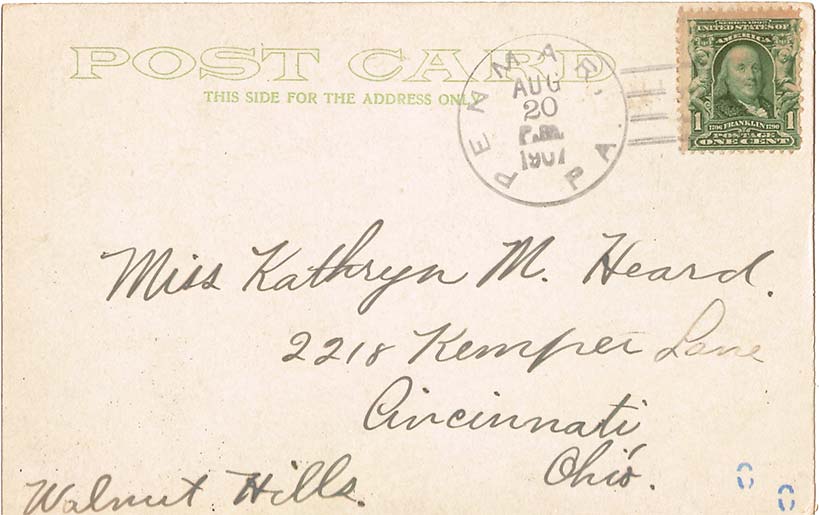 POST CARD
THIS SIDE FOR THE ADDRESS ONLY
PENMAR, PA.
AUG
20
P.M.
1907
SERIES 1902
UNITED STATES OF
AMERICA
1 1706 FRANKLIN 1790 1
POSTAGE
ONE CENT
Miss Kathryn M. Heard.
2218 Kemper Lane
Cincinnati
Ohio.
Walnut Hills.